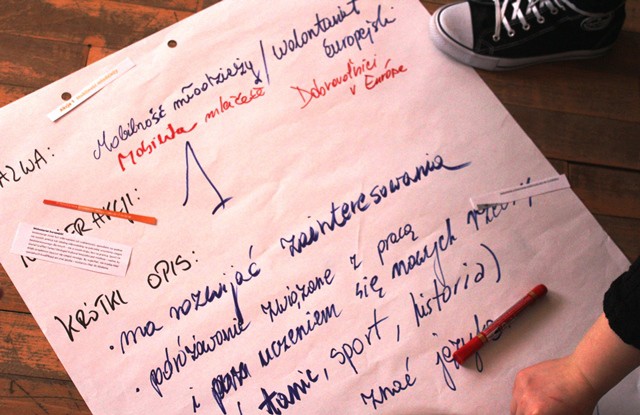 Mobilność młodzieży / Wolontariat Europejski
Mobilita mládeže
Dobrovolníci v Európe
AZWA:
AKCJI:
1
KRÓTKI OPIS:
• ma rozwijać zainteresowania
• podróżowanie związane z pracą
i uczeniem się nowych rzeczy
taniec, sport, historia)
znać język